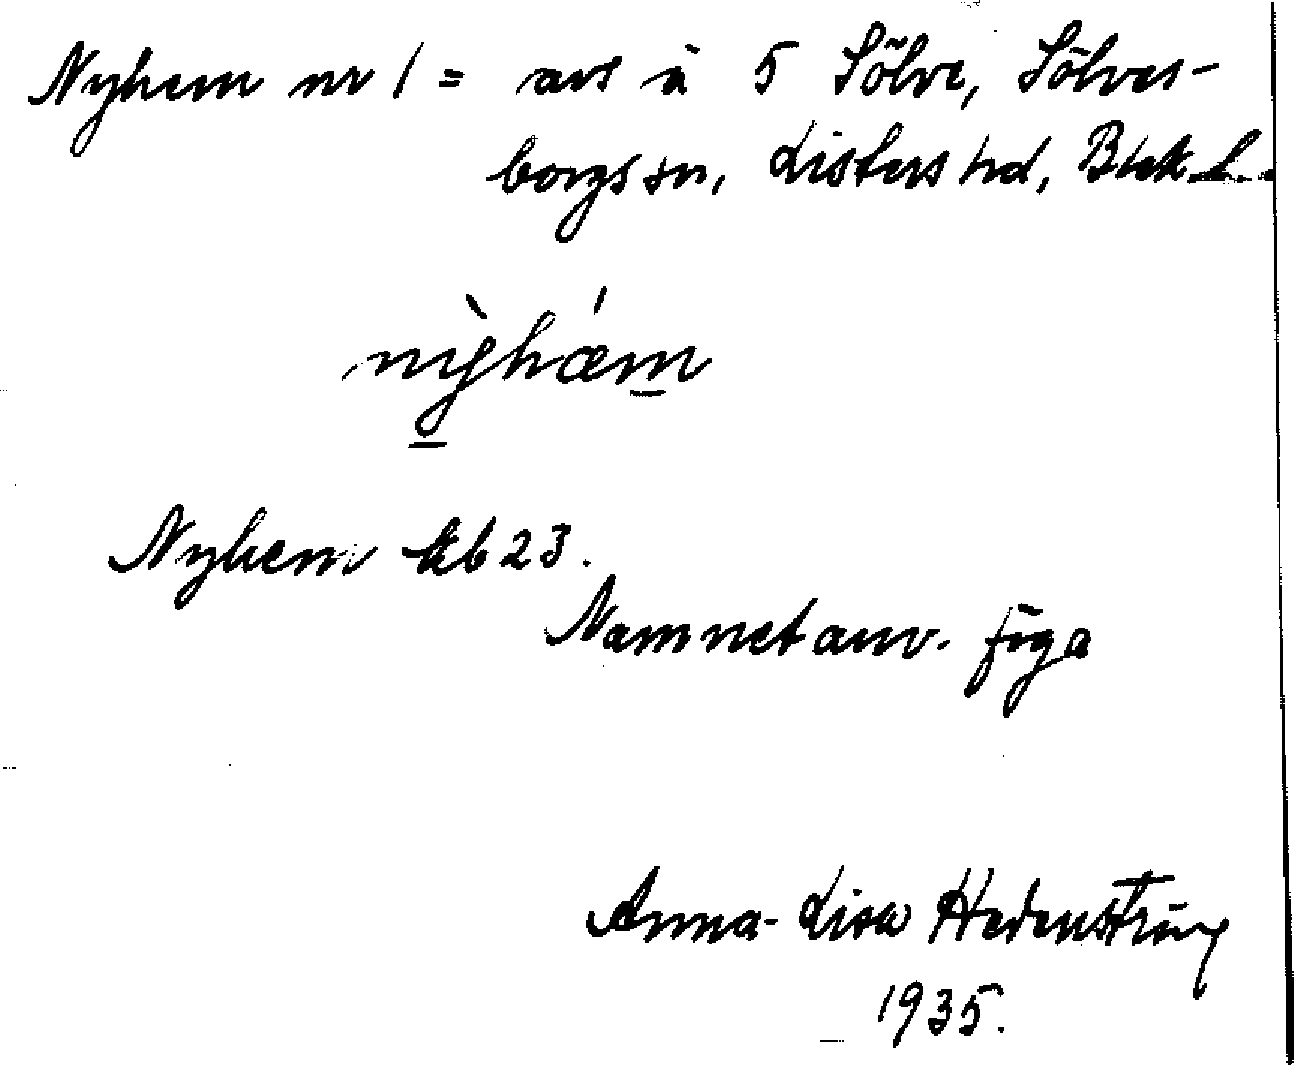 Nyhem nr 1 = avs å 5 Sölve, Sölves-
borgs sn, Listers hd, Blek. l.
nỳhǽm
Nyhem kb 23.
Namnet anv. föga
Anna-Lisa Hedenstüng
1935.